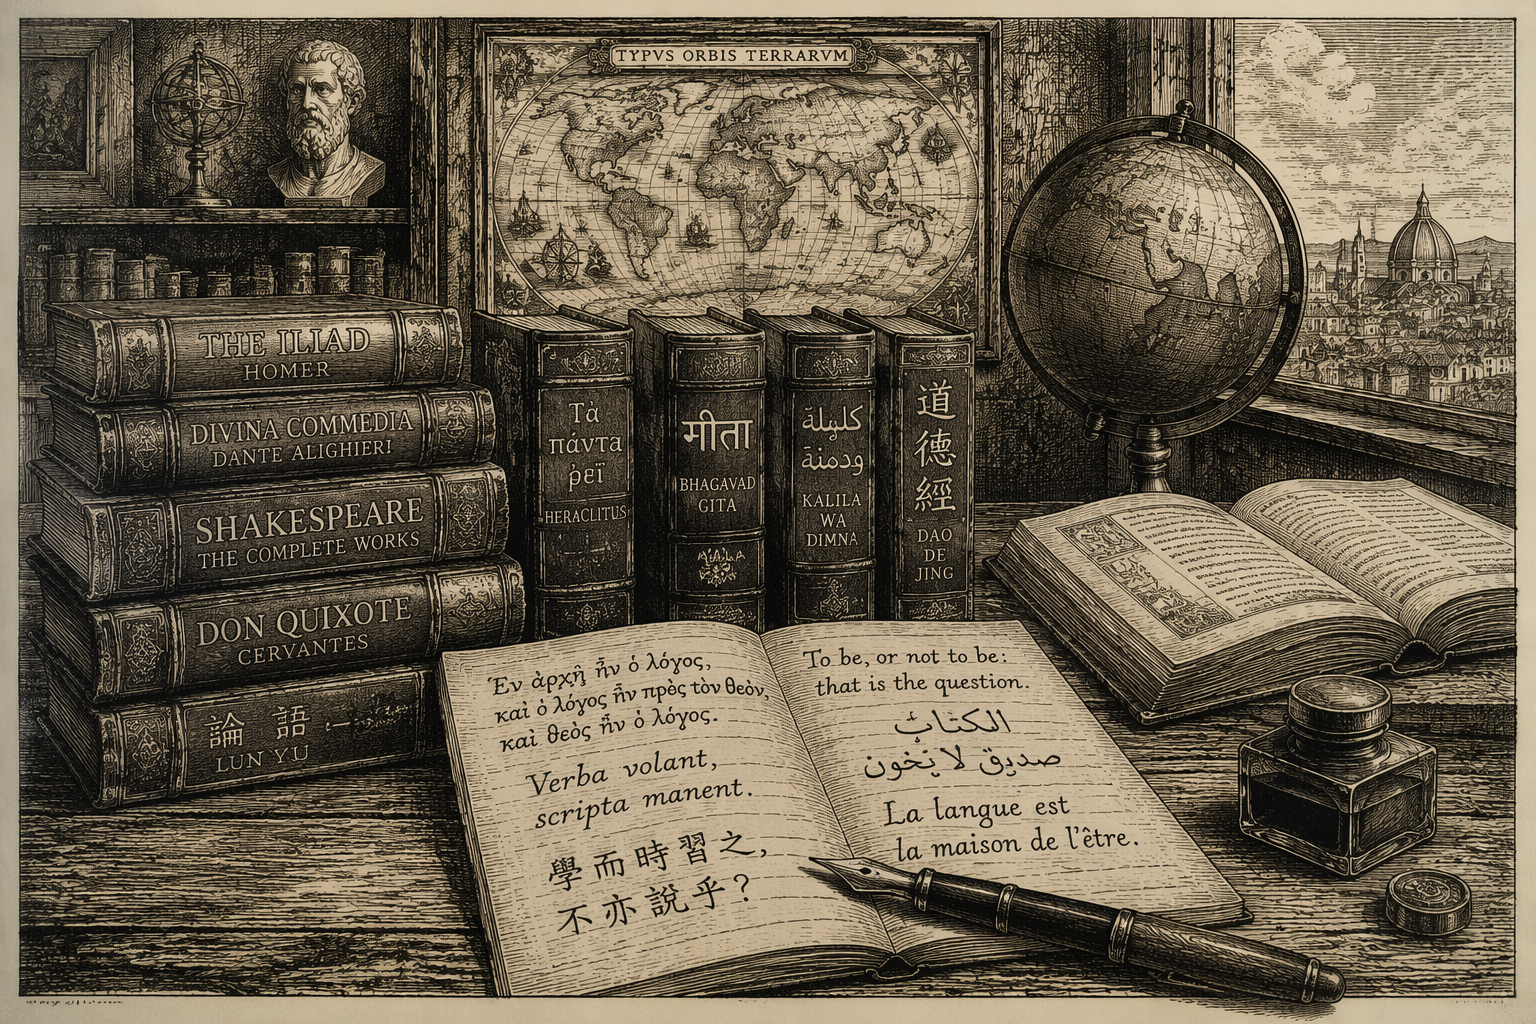 TYPVS ORBIS TERRARVM
THE ILIAD
HOMER
DIVINA COMMEDIA
DANTE ALIGHIERI
SHAKESPEARE
THE COMPLETE WORKS
DON QUIXOTE
CERVANTES
論語
LUN YU
Τὰ
πάντα
ῥεῖ
HERACLITUS
गीता
BHAGAVAD
GITA
كليلة
ودمنة
KALILA
WA
DIMNA
道
德
經
DAO
DE
JING
Ἐν ἀρχῇ ἦν ὁ λόγος,
καὶ ὁ λόγος ἦν πρὸς τὸν θεὸν,
καὶ θεὸς ἦν ὁ λόγος.
Verba volant,
scripta manent.
學而時習之,
不亦說乎?
To be, or not to be:
that is the question.
الكتاب
صديق لا يخون
La langue est
la maison de l'être.